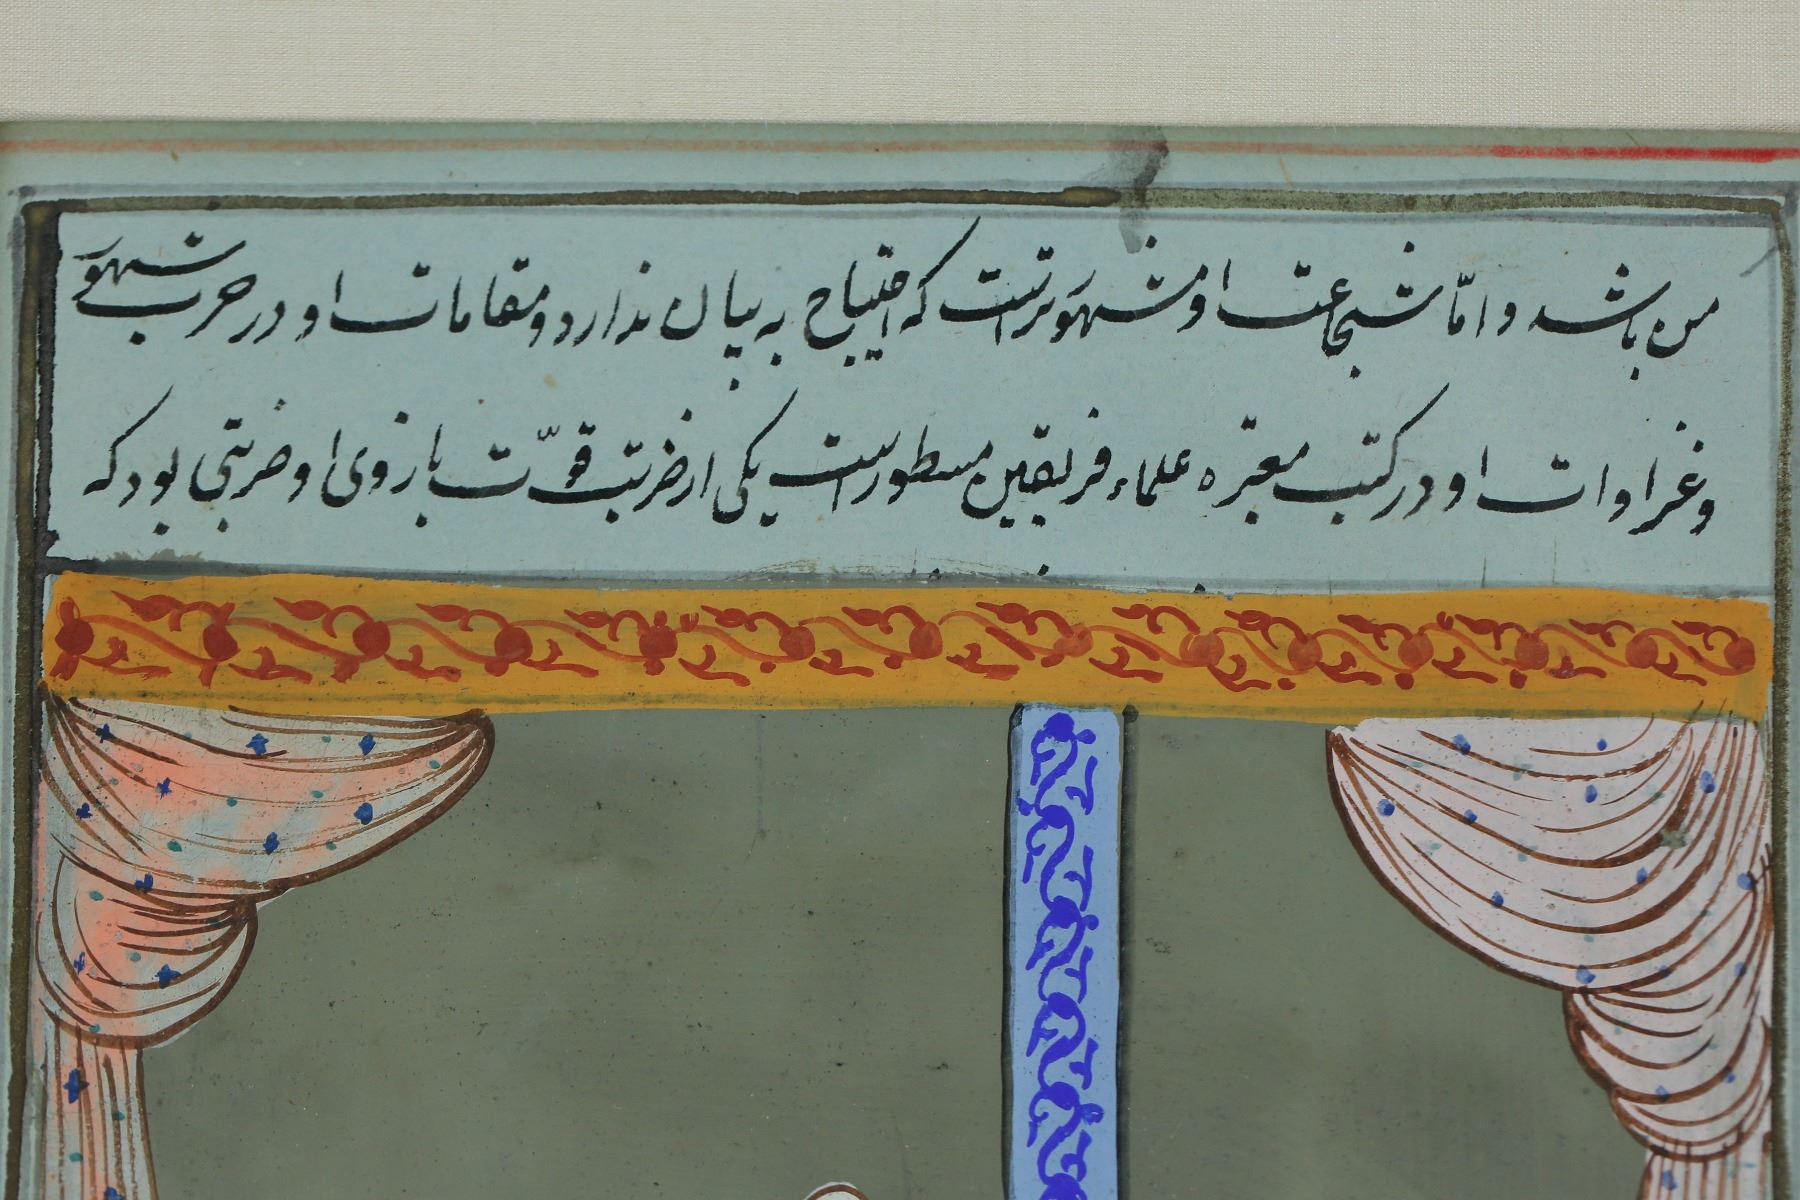 من باشد و امّا شجاعت او مشهورتر است که احتیاج به بیان ندارد و مقامات او در حرب مشهور
و غزاوات او در کتب معتبره علماء فریقین مسطور است یکی از ضربت قوّت بازوی او ضربتی بود که